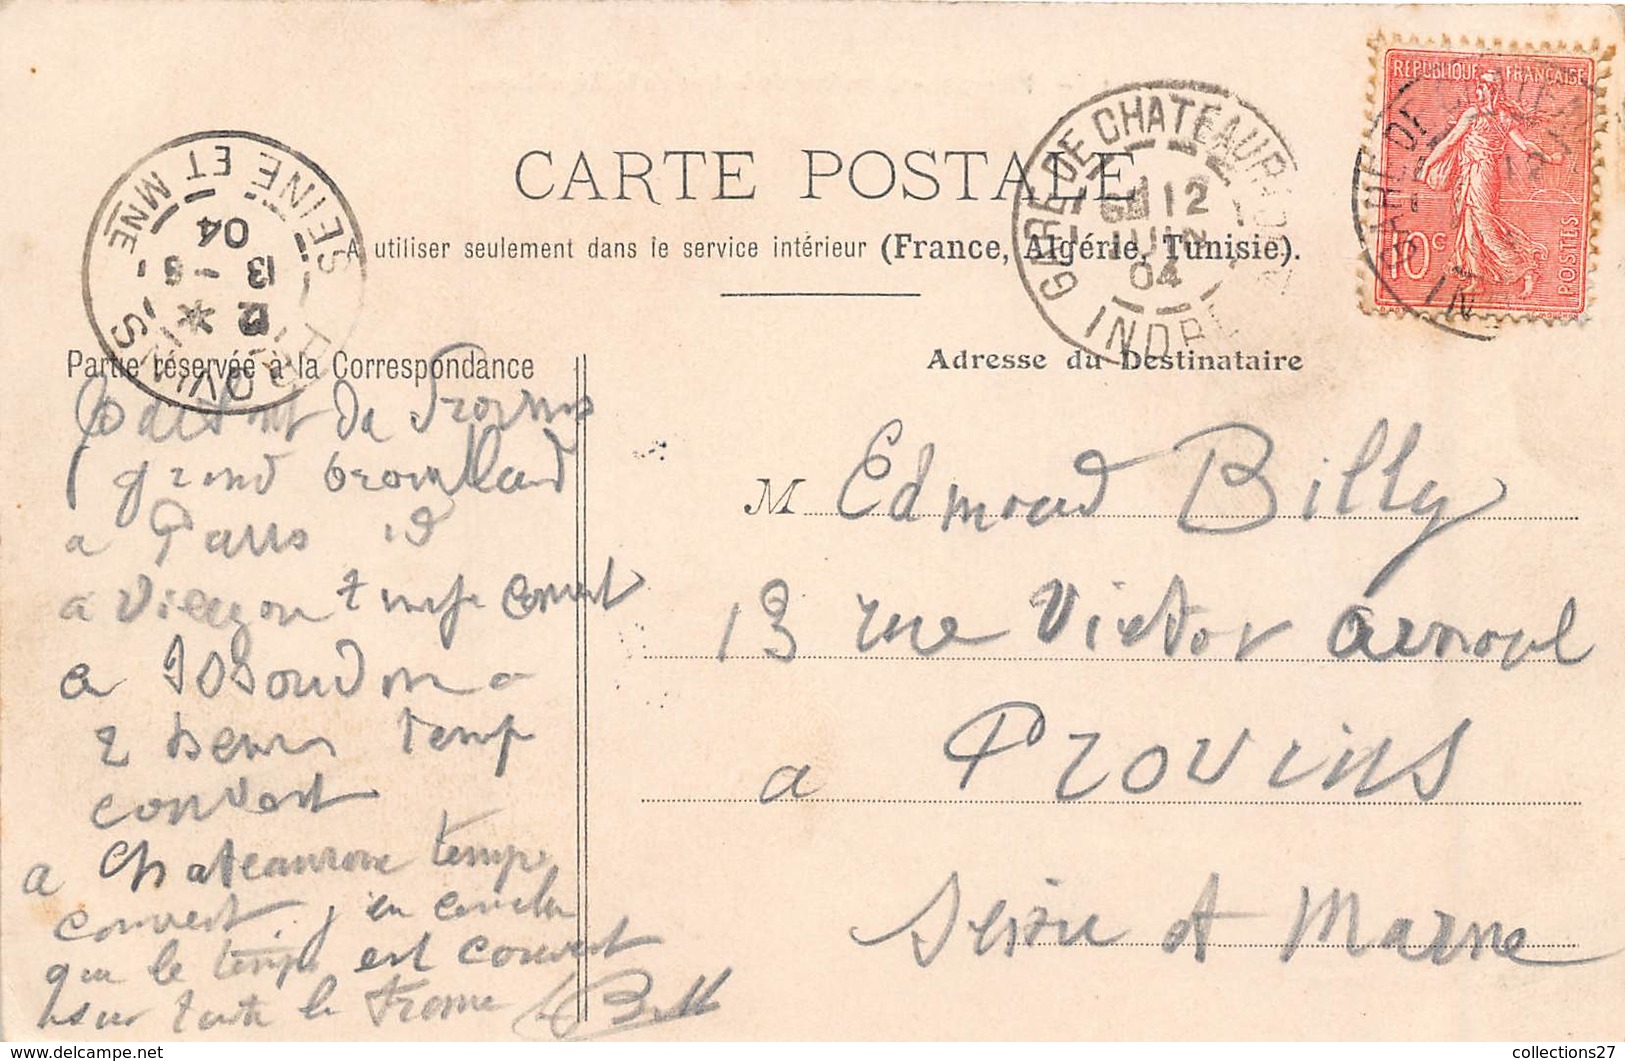 CARTE POSTALE
A utiliser seulement dans le service intérieur (France, Algérie, Tunisie).
Partie réservée à la Correspondance
Adresse du Destinataire
SEINE ET MNE
13
04
PROVINS
GARE DE CHATEAUROUX
12
JUIN
04
INDRE
REPUBLIQUE FRANÇAISE
10 c
POSTES
GARE DE
IN
partant de Provins
grand brouillard
a Paris id
a Vierzon temp couvert
a Issoudun a
2 heures temp
couvert
a Chateauroux temps
couvert j'en conclu
que le temps est couvert
sur toute la France
M Edmond Billy
13 rue Victor Arnoul
a Provins
Seine et Marne
collections27